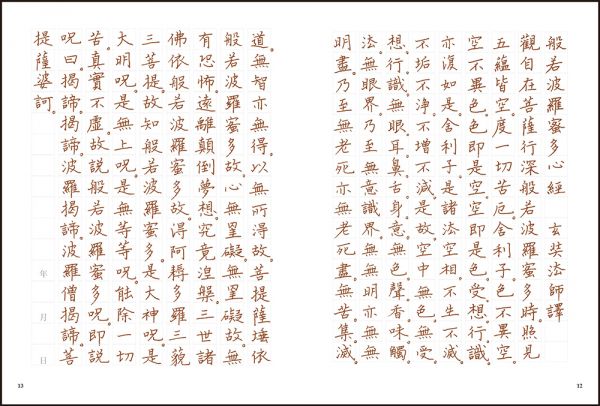 般若波羅蜜多心經　玄奘法師譯
觀自在菩薩行深般若波羅蜜多時照見
五蘊皆空。度一切苦厄。舍利子。色不異空。
空不異色。色即是空。空即是色。受想行識。
亦復如是。舍利子。是諸法空相。不生不滅。
不垢不淨。不增不減。是故空中無色。無受
想行識。無眼耳鼻舌身意。無色聲香味觸
法。無眼界。乃至無意識界。無無明亦無無
明盡。乃至無老死亦無老死盡。無苦集滅
12
道。無智亦無得。以無所得故。菩提薩埵依
般若波羅蜜多故。心無罣礙。無罣礙故。無
有恐怖。遠離顛倒夢想。究竟涅槃。三世諸
佛依般若波羅蜜多故。得阿耨多羅三藐
三菩提。故知般若波羅蜜多。是大神呪。是
大明呪。是無上呪。是無等等呪。能除一切
苦。真實不虛。故說般若波羅蜜多呪。即說
呪曰。揭諦。揭諦。波羅揭諦。波羅僧揭諦。菩
提薩婆訶。
年月日
13